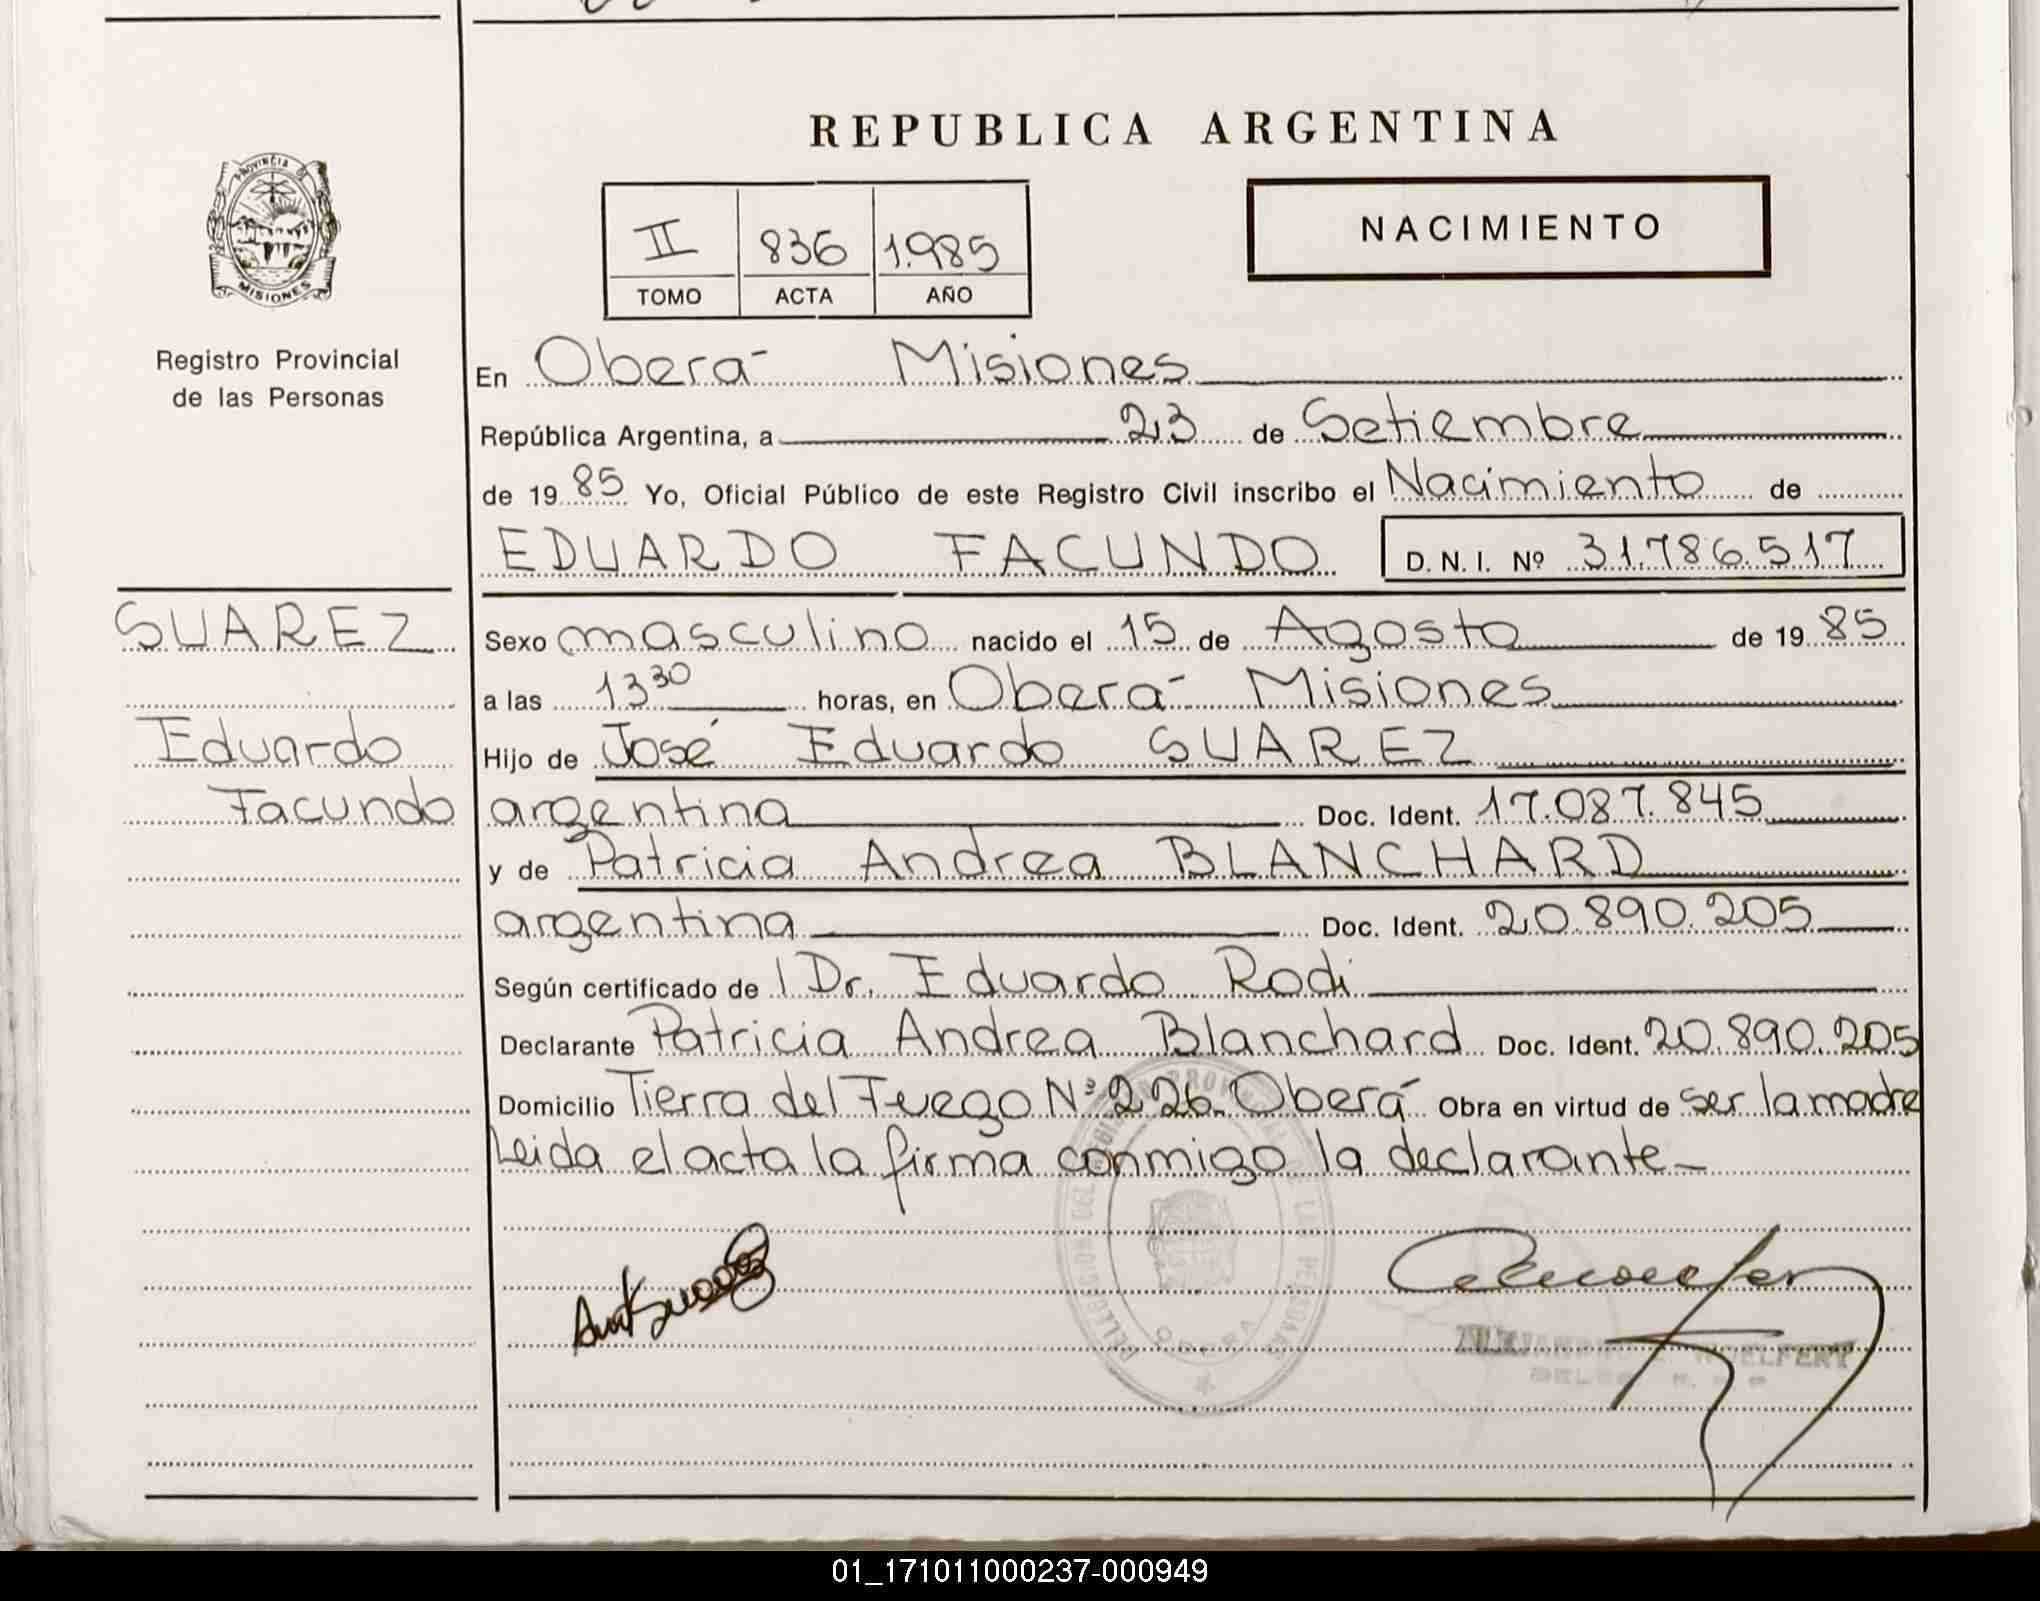 REPUBLICA ARGENTINA
PROVINCIA DE
MISIONES
Registro Provincial
de las Personas
II 836 1.985
TOMO ACTA AÑO
NACIMIENTO
En Oberá Misiones
República Argentina, a 23 de Setiembre
de 1985 Yo, Oficial Público de este Registro Civil inscribo el Nacimiento de
EDUARDO FACUNDO D. N. I. Nº 31.786.517
SUAREZ
Eduardo
Facundo
Sexo masculino nacido el 15 de Agosto de 1985
a las 13 30 horas, en Oberá Misiones
Hijo de José Eduardo SUAREZ
argentina Doc. Ident. 17.087.845
y de Patricia Andrea BLANCHARD
argentina Doc. Ident. 20.890.205
Según certificado de l Dr. Eduardo Rodi
Declarante Patricia Andrea Blanchard Doc. Ident. 20.890.205
Domicilio Tierra del Fuego Nº 226 Oberá Obra en virtud de ser la madre
Leida el acta la firma conmigo la declarante
DELEGACION DEL REGISTRO PROVINCIAL DE LAS PERSONAS
OBERA
WOELFERT
01_171011000237-000949